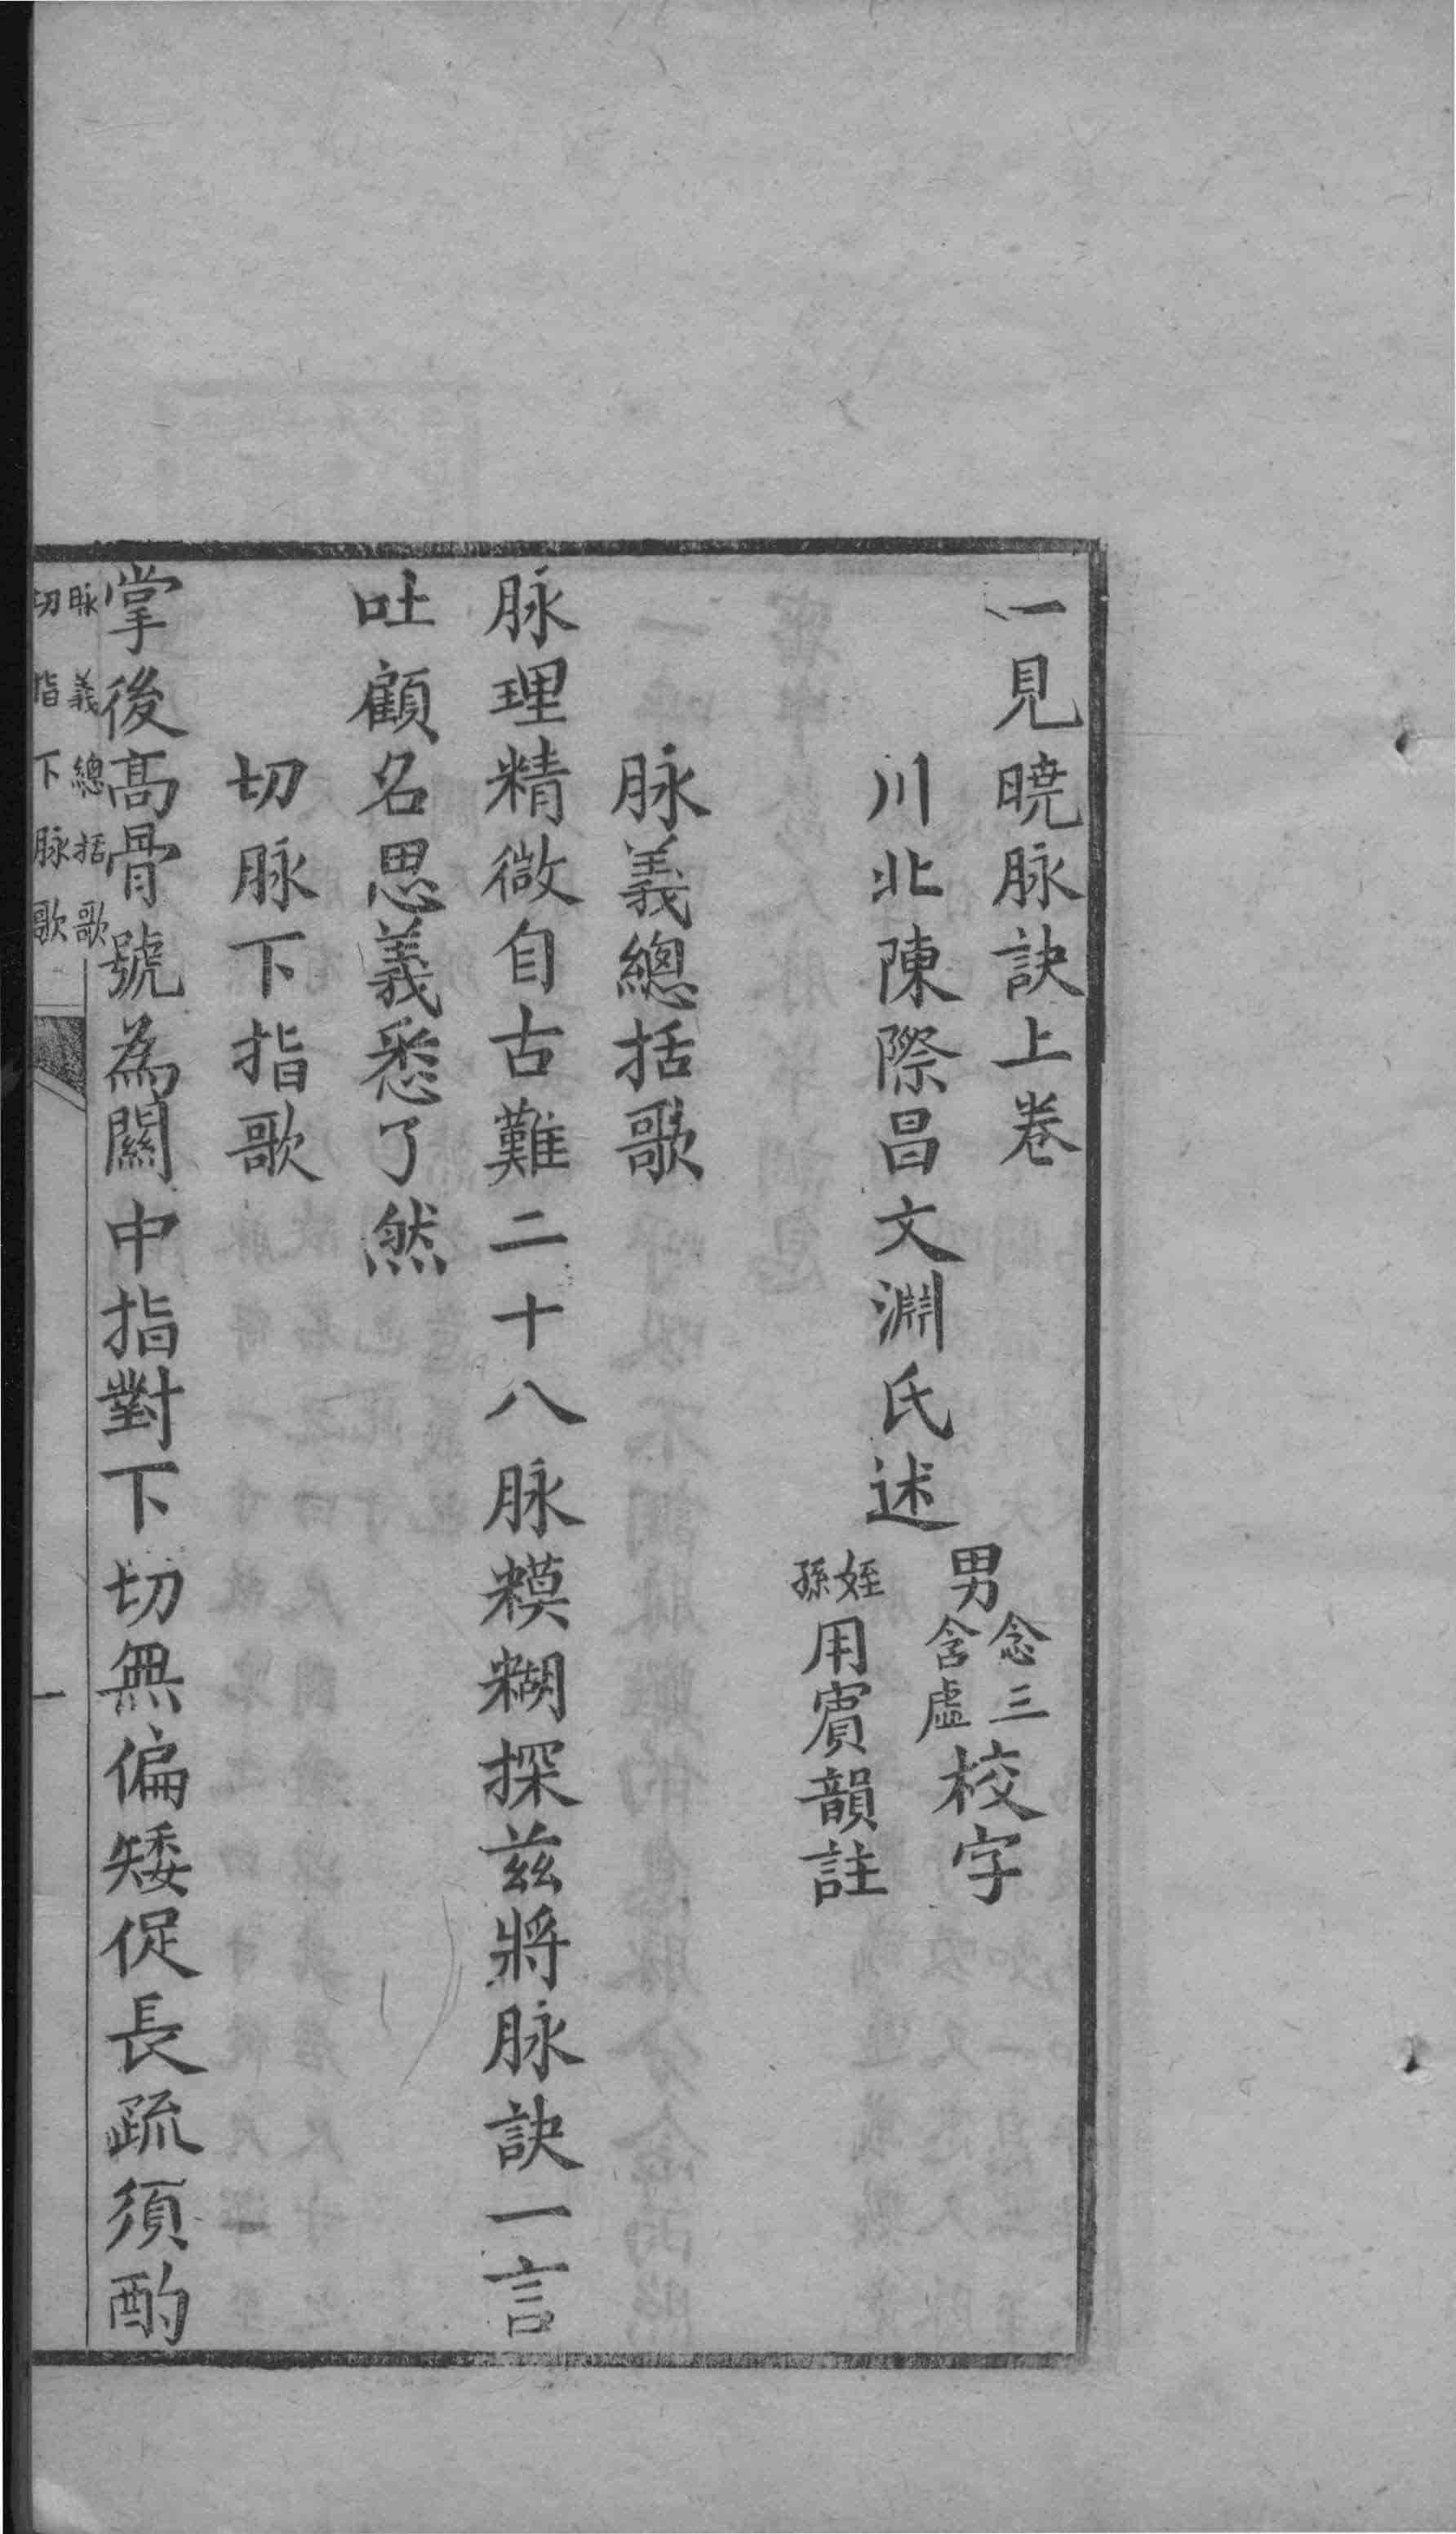 一見曉脉訣上卷
川北陳際昌文淵氏述
男念三含虛校字
姪孫用賓韻註
脉義總括歌
脉理精微自古難二十八脉糢糊探兹將脉訣一言
吐顧名思義悉了然
切脉下指歌
掌後高骨號為關中指對下切無偏矮促長疏須酌
脉義總括歌
切指下脉歌
一